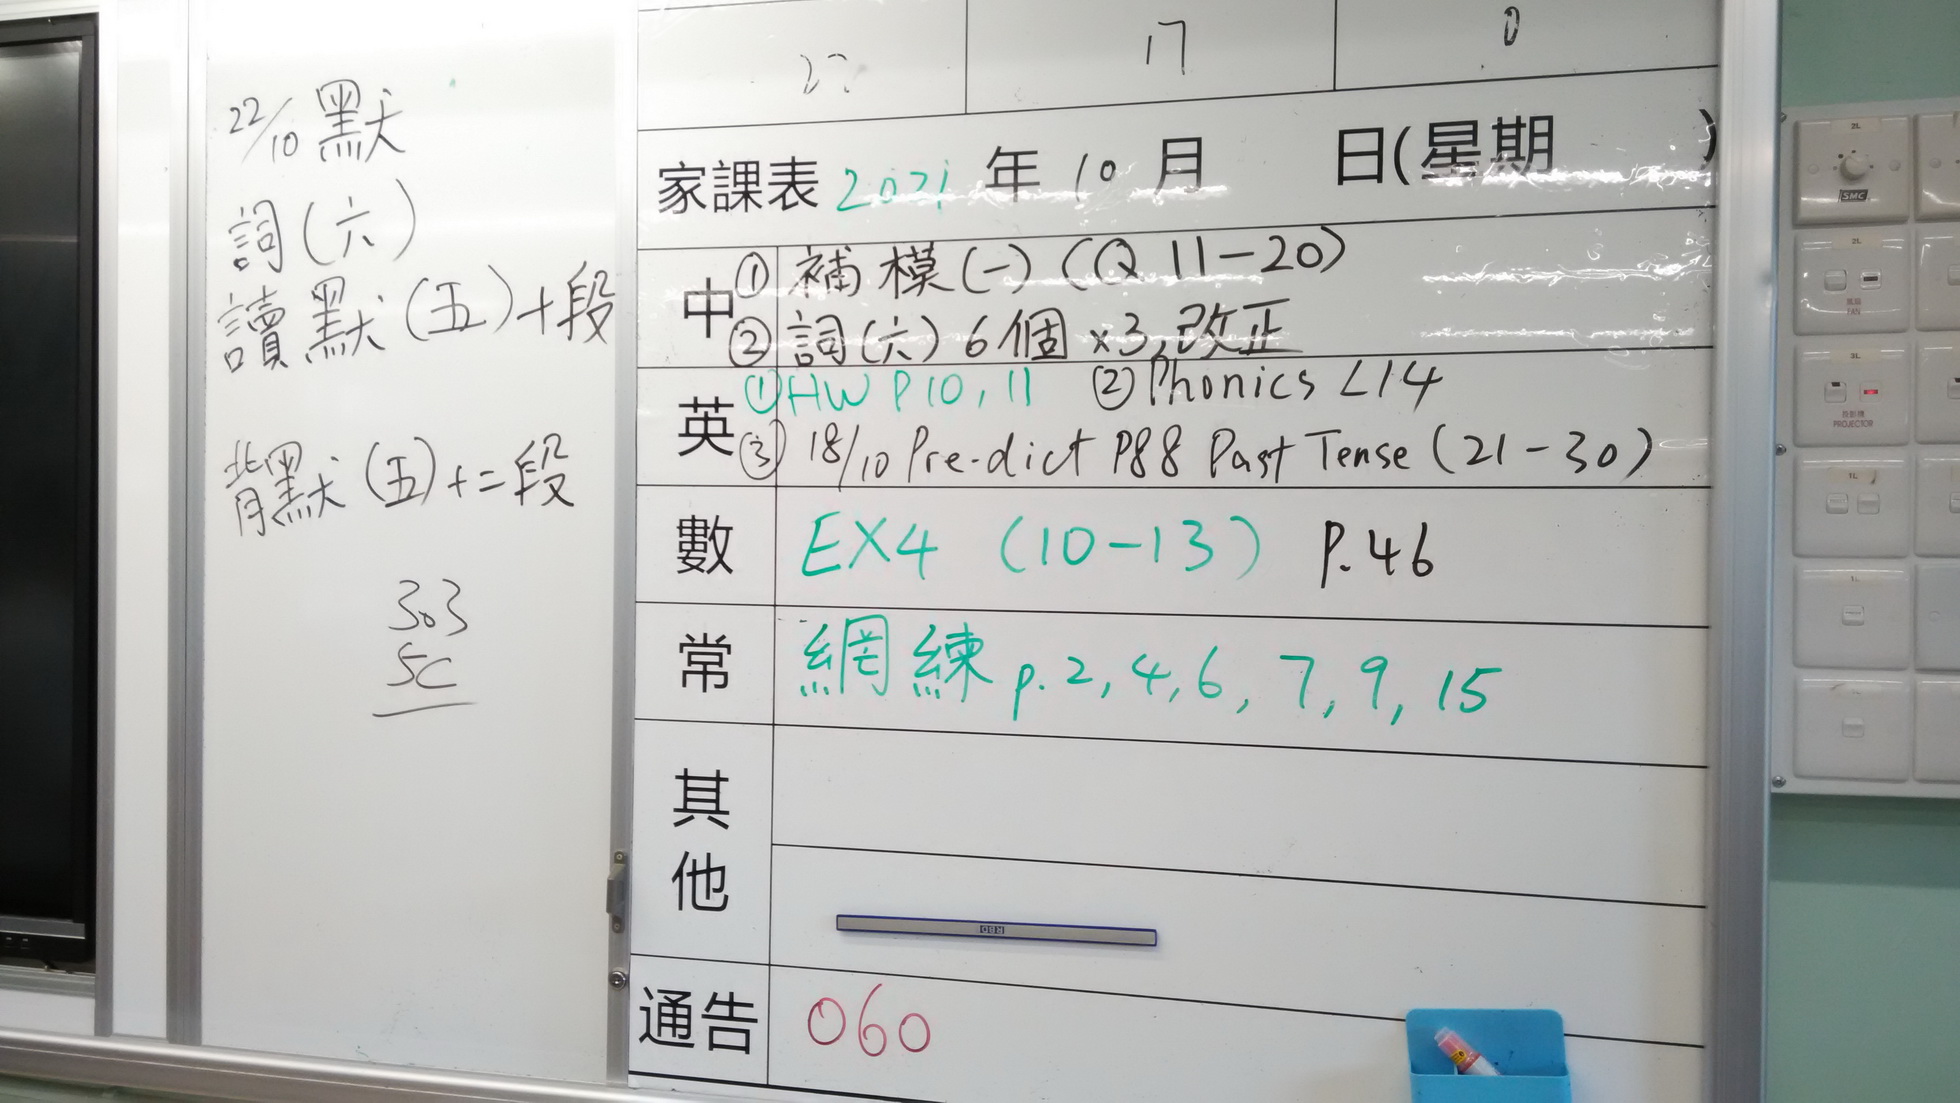 22/10 默
詞(六)
讀默(五)+段
背默(五)+二段
303
5C
17 0
家課表 2021 年 10 月 日(星期 )
中 ① 補模(一) (Q 11-20)
② 詞(六) 6個 ×3, 改正
英 ① HW P10, 11 ② Phonics L14
③ 18/10 Pre-dict P88 Past Tense (21-30)
數 EX4 (10-13) P.46
常 網練 p.2, 4, 6, 7, 9, 15
其他
通告 060
SMC
2L
風扇
FAN
3L
投影機
PROJECTOR
1L